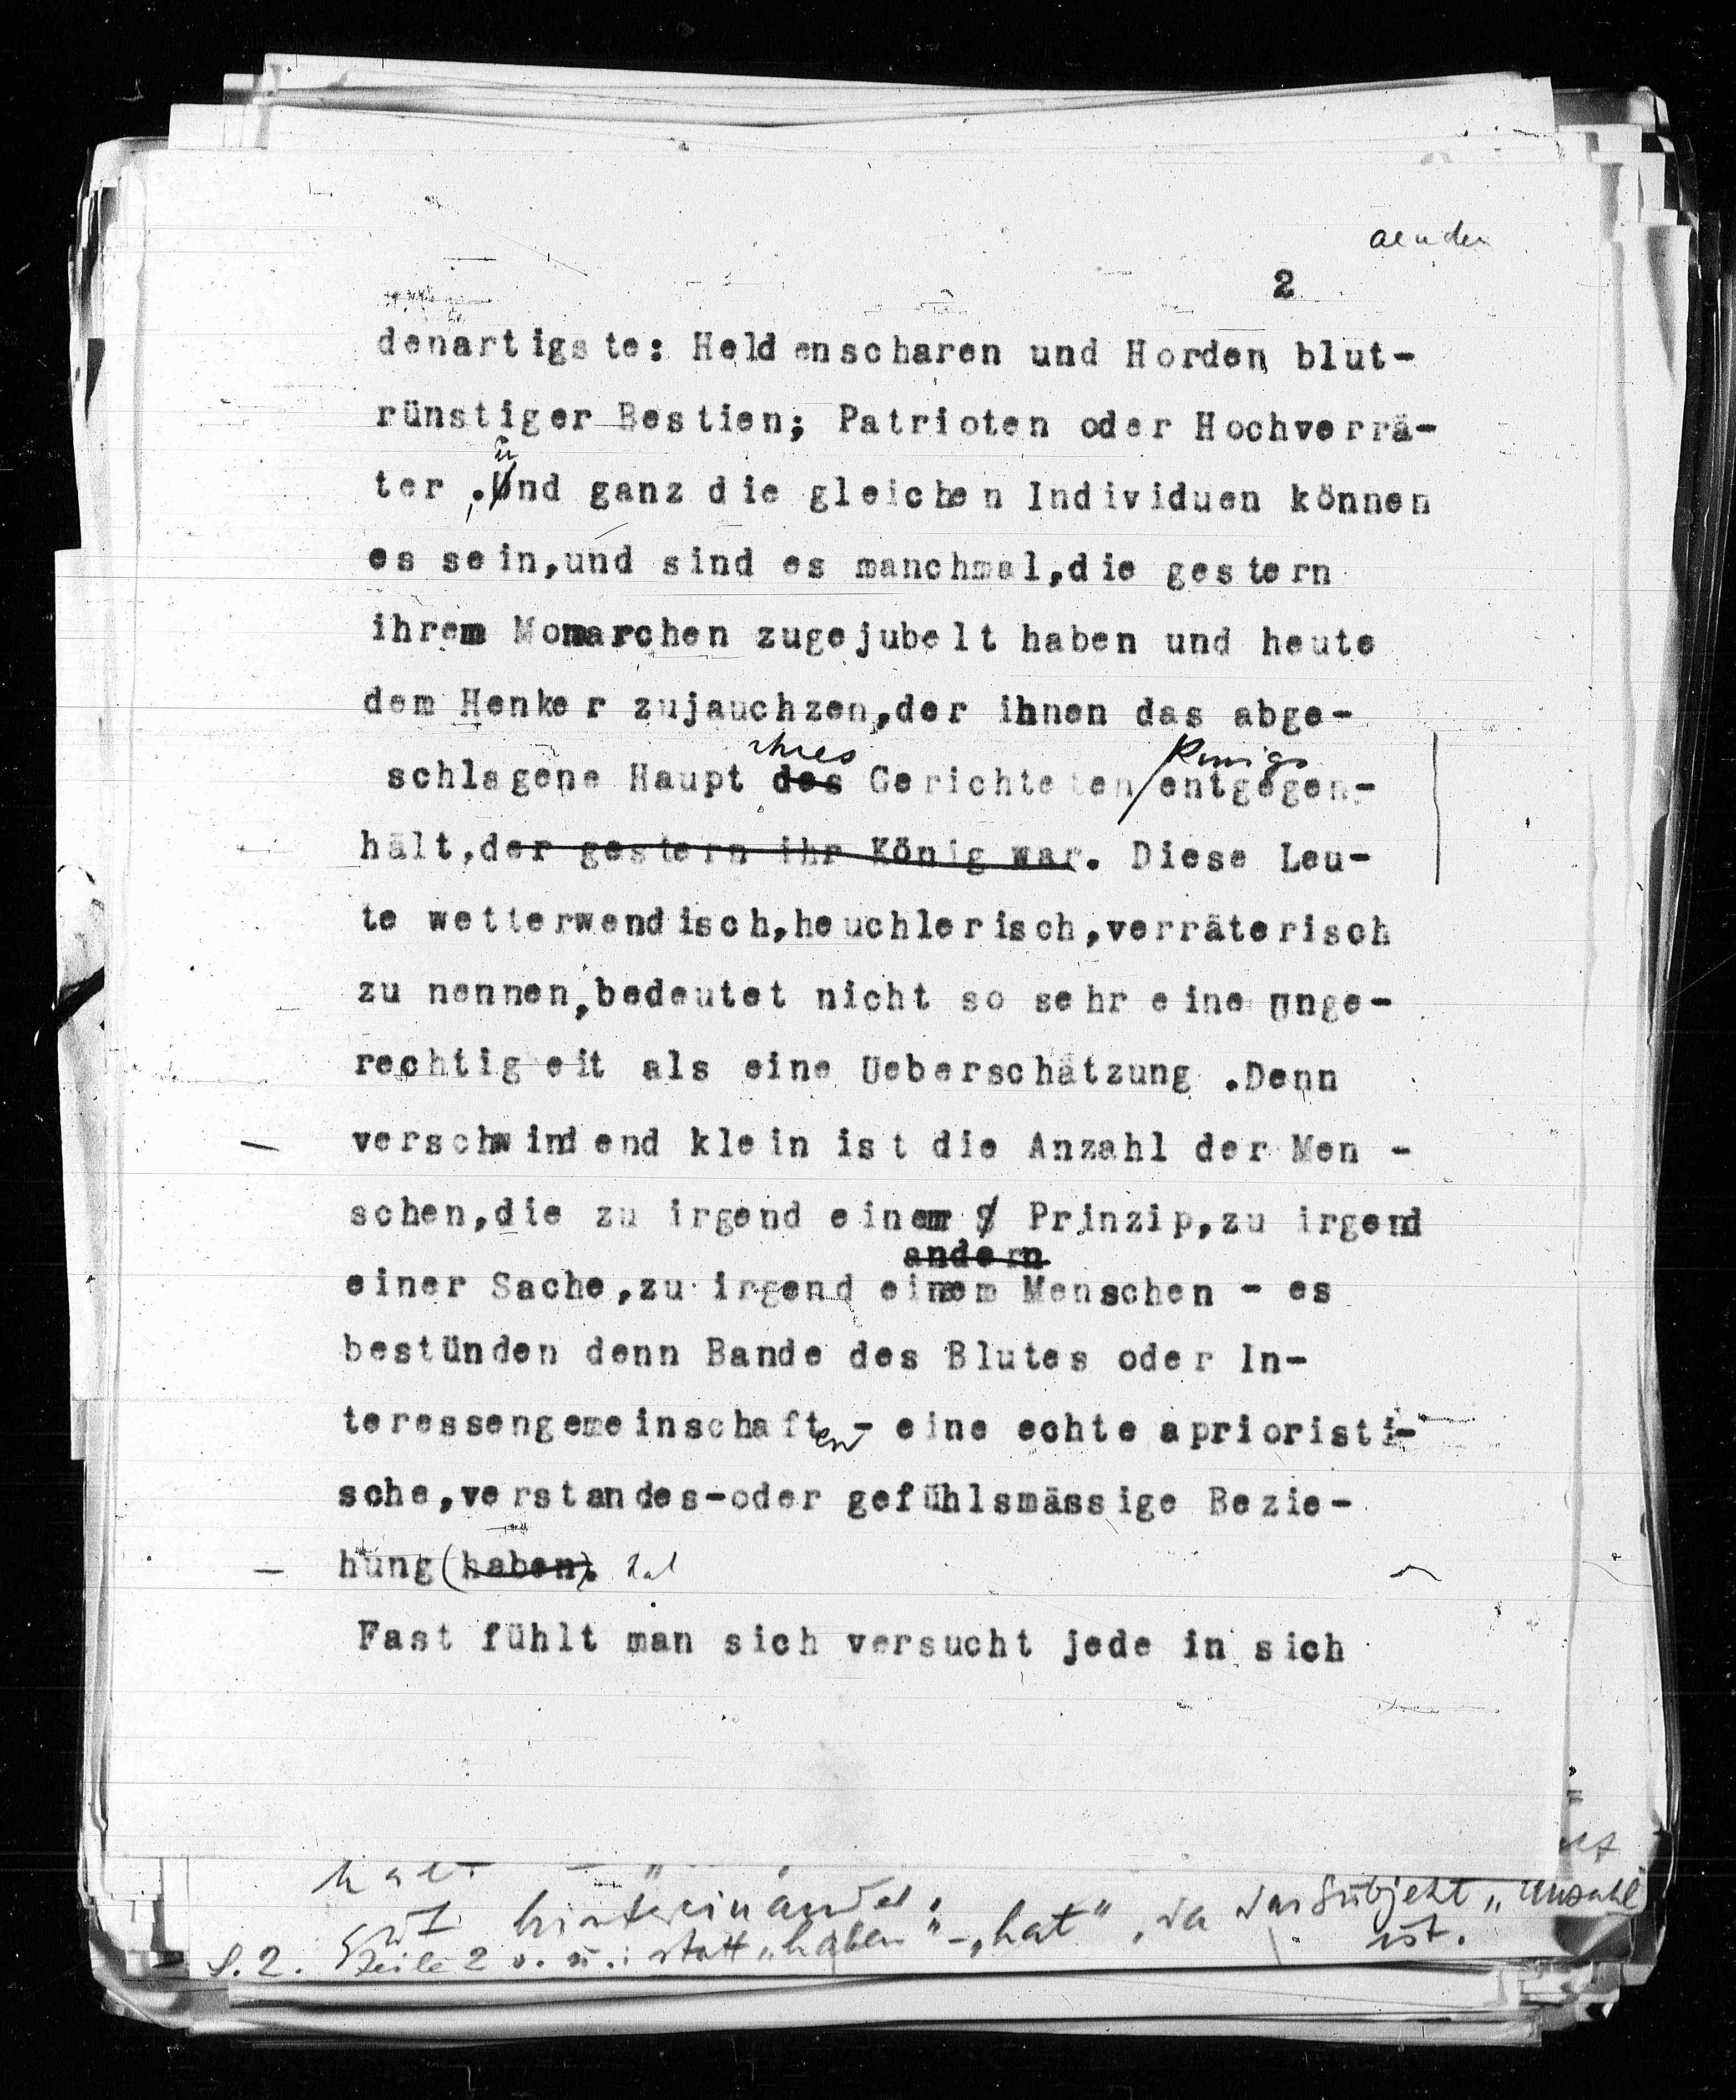 aender
2
denartigste: Heldenscharen und Horden blut-
rünstiger Bestien; Patrioten oder Hochverrä-
u
ter ,.Und ganz die gleichen Individuen können
es sein,und sind es manchmal,die gestern
ihrem Monarchen zugejubelt haben und heute
dem Henker zujauchzen,der ihnen das abge-
ihres Königs
schlagene Haupt des Gerichteten entgegen-
hält,der gestern ihr König war. Diese Leu-
te wetterwendisch,heuchlerisch,verräterisch
zu nennen,bedeutet nicht so sehr eine Unge-
rechtigkeit als eine Ueberschätzung .Denn
verschwindend klein ist die Anzahl der Men -
schen,die zu irgend einem Prinzip,zu irgend
andern
einer Sache,zu irgend einem Menschen - es
bestünden denn Bande des Blutes oder In-
teressengemeinschaften - eine echte aprioristi-
sche,verstandes-oder gefühlsmässige Bezie-
hung (haben). hat
Fast fühlt man sich versucht jede in sich
hintereinander.
S.2. Zeile 2 v. u.: statt „haben" - „hat", da das Subjekt „Anzahl
ist.